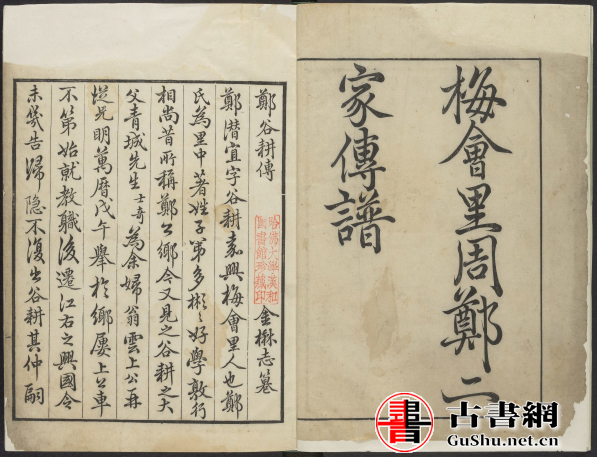 梅會里周鄭二
家傳譜
鄭谷耕傳 金楙志纂
哈佛大學漢和
圖書館珍藏印
鄭潛宜字谷耕嘉興梅會里人也鄭
氏為里中著姓子弟多彬〻好學敦行
相尚昔所稱鄭公鄉今又見之谷耕之大
父青城先生士奇為余婦翁雲上公再
從兄明萬曆戊午舉於鄉屢上公車
不第始就教職後遷江右之興國令
未幾告歸隐不復出谷耕其仲嗣
書
古書網
GuShu.net.cn